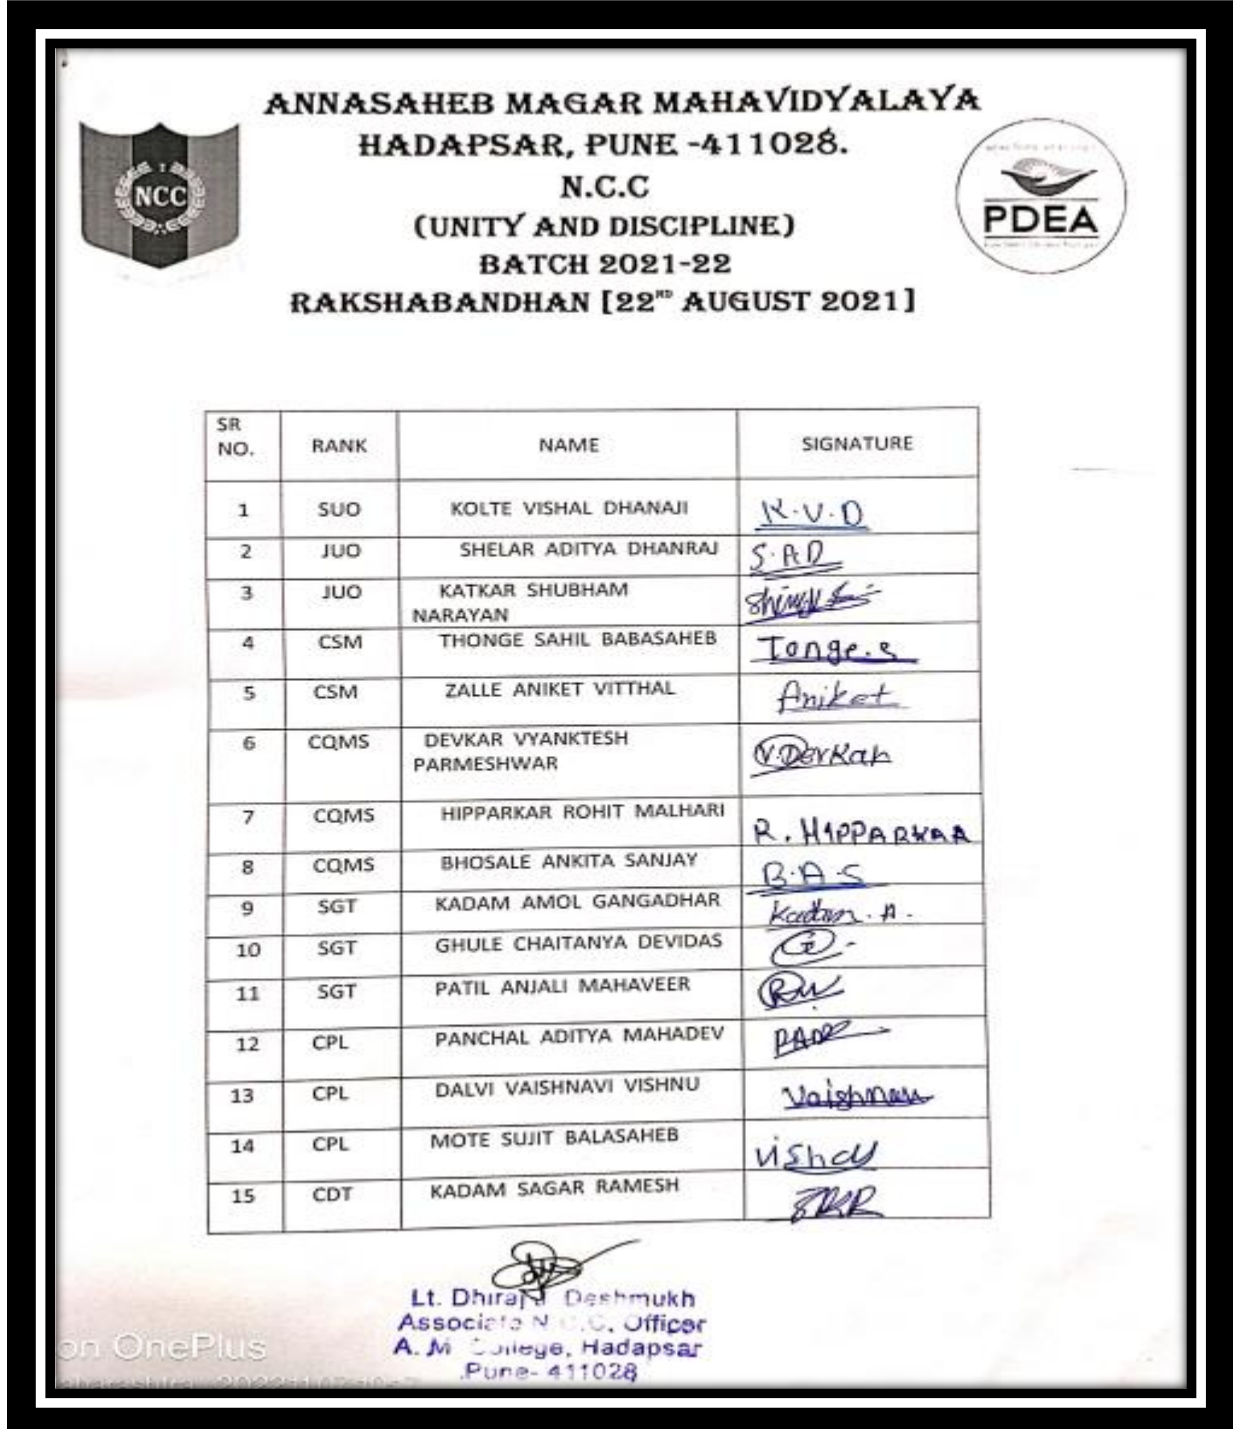 ANNASAHEB MAGAR MAHAVIDYALAYA
HADAPSAR, PUNE -411028.
N.C.C
(UNITY AND DISCIPLINE)
BATCH 2021-22
RAKSHABANDHAN [22ND AUGUST 2021]
NCC
PDEA
SR NO. RANK NAME SIGNATURE
1 SUO KOLTE VISHAL DHANAJI K.V.D
2 JUO SHELAR ADITYA DHANRAJ S.A.D
3 JUO KATKAR SHUBHAM
NARAYAN
4 CSM THONGE SAHIL BABASAHEB Tonge.s
5 CSM ZALLE ANIKET VITTHAL Aniket
6 CQMS DEVKAR VYANKTESH
PARMESHWAR V.Devkar
7 CQMS HIPPARKAR ROHIT MALHARI R. HIPPARKAR
8 CQMS BHOSALE ANKITA SANJAY B.A.S
9 SGT KADAM AMOL GANGADHAR Kadam. A.
10 SGT GHULE CHAITANYA DEVIDAS
11 SGT PATIL ANJALI MAHAVEER
12 CPL PANCHAL ADITYA MAHADEV
13 CPL DALVI VAISHNAVI VISHNU
14 CPL MOTE SUJIT BALASAHEB
15 CDT KADAM SAGAR RAMESH SKR
Lt. Dhiraj Deshmukh
Associate N.C.C. Officer
A. M College, Hadapsar
Pune- 411028
on OnePlus